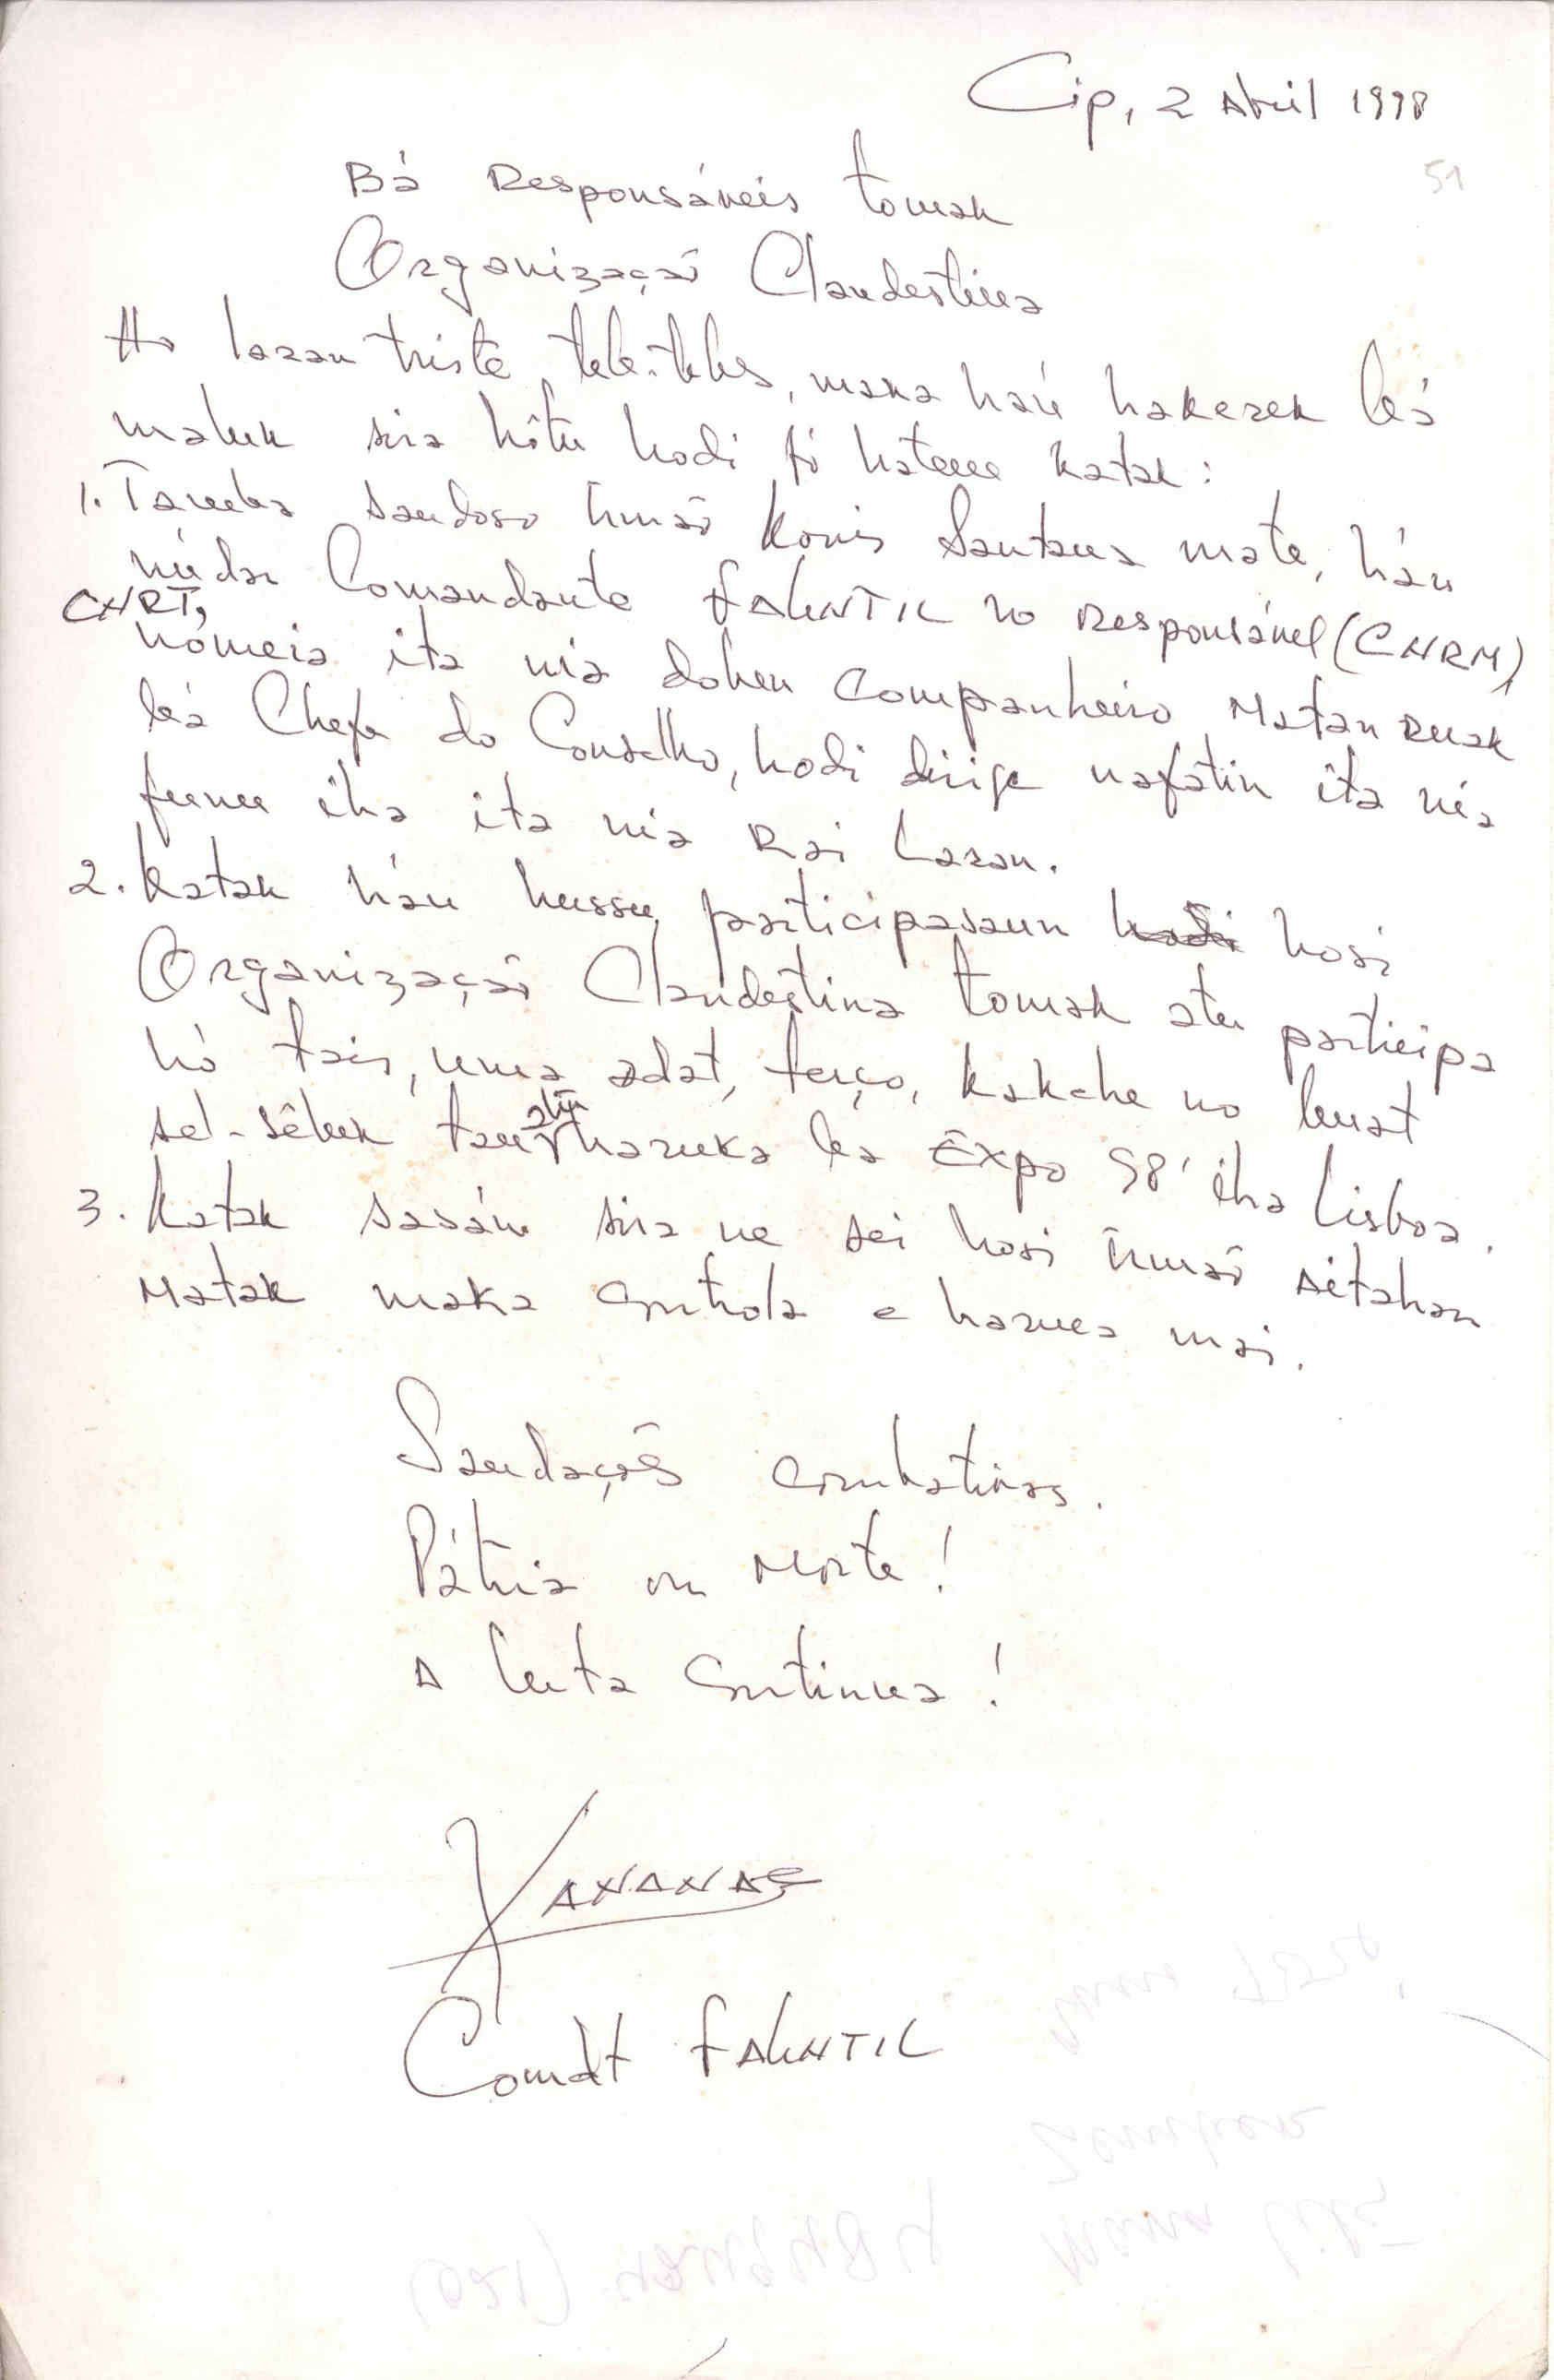 Cip, 2 Abril 1998
51
Bá Responsáveis tomak
Organização Clandestina
Ho laran triste tebe-tebes, maka haú hakerek bá
maluk sira hôtu hodi fó hatene katak:
1. Tamba saudoso Irmão Konis Santana mate, háu
núdar Comandante FALINTIL no Responsável (CNRM),
CNRT,
nómeia ita nia doben Companheiro Matan Ruak
bá Chefe do Conselho, hodi dirige nafatin ita nia
funu iha ita nia Rai Laran.
2. Katak háu hussu participasaun hodi hosi
Organização Clandestina tomak atu participa
hó tais, uma adat, terço, kakehe no buat
sel-sêluk tau atu haruka ba Expo 98' iha Lisboa.
3. Katak sasán sira ne sei hosi Irmão Aitahan
Matak maka controla e haruca mai.
Saudações combativas.
Pátria ou Morte!
A luta continua!
XANANAG
Comdt FALINTIL